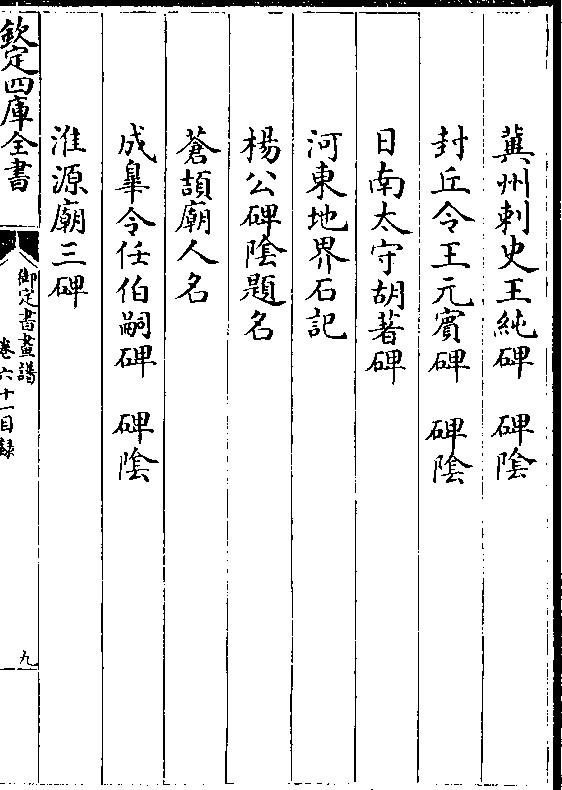 冀州刺史王純碑　碑陰
封丘令王元賓碑　碑陰
日南太守胡著碑
河東地界石記
楊公碑陰題名
蒼頡廟人名
成臯令任伯嗣碑　碑陰
淮源廟三碑
欽定四庫全書
御定書畫譜
卷六十一目録
九